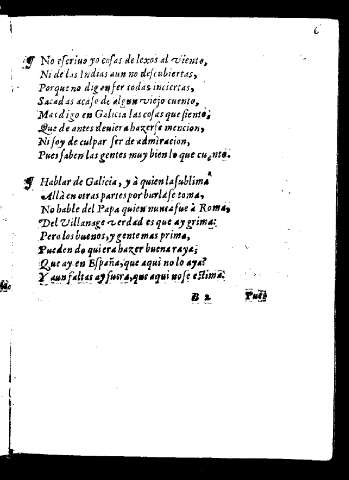 6
¶ No escriuo yo cosas de lexos al viento,
Ni de las Indias aun no descubiertas,
Porque no digan ser todas inciertas,
Sacadas acaso de algun viejo cuento,
Mas digo en Galicia las cosas que siento,
Que de antes deuiera hazerse mencion,
Ni soy de culpar ser de admiracion,
Pues saben las gentes muy bien lo que cuento.
¶ Hablar de Galicia, y à quien la sublima
Allà en otras partes por burla se toma,
No hable del Papa quien nunca fue à Roma,
Del Villanage verdad es que ay grima:
Pero los buenos, y gente mas prima,
Pueden do quiera hazer buena raya;
Que ay en España, que aqui no lo aya?
Y aun faltas ay fuera, que aqui no se estima.
B 2 Pues